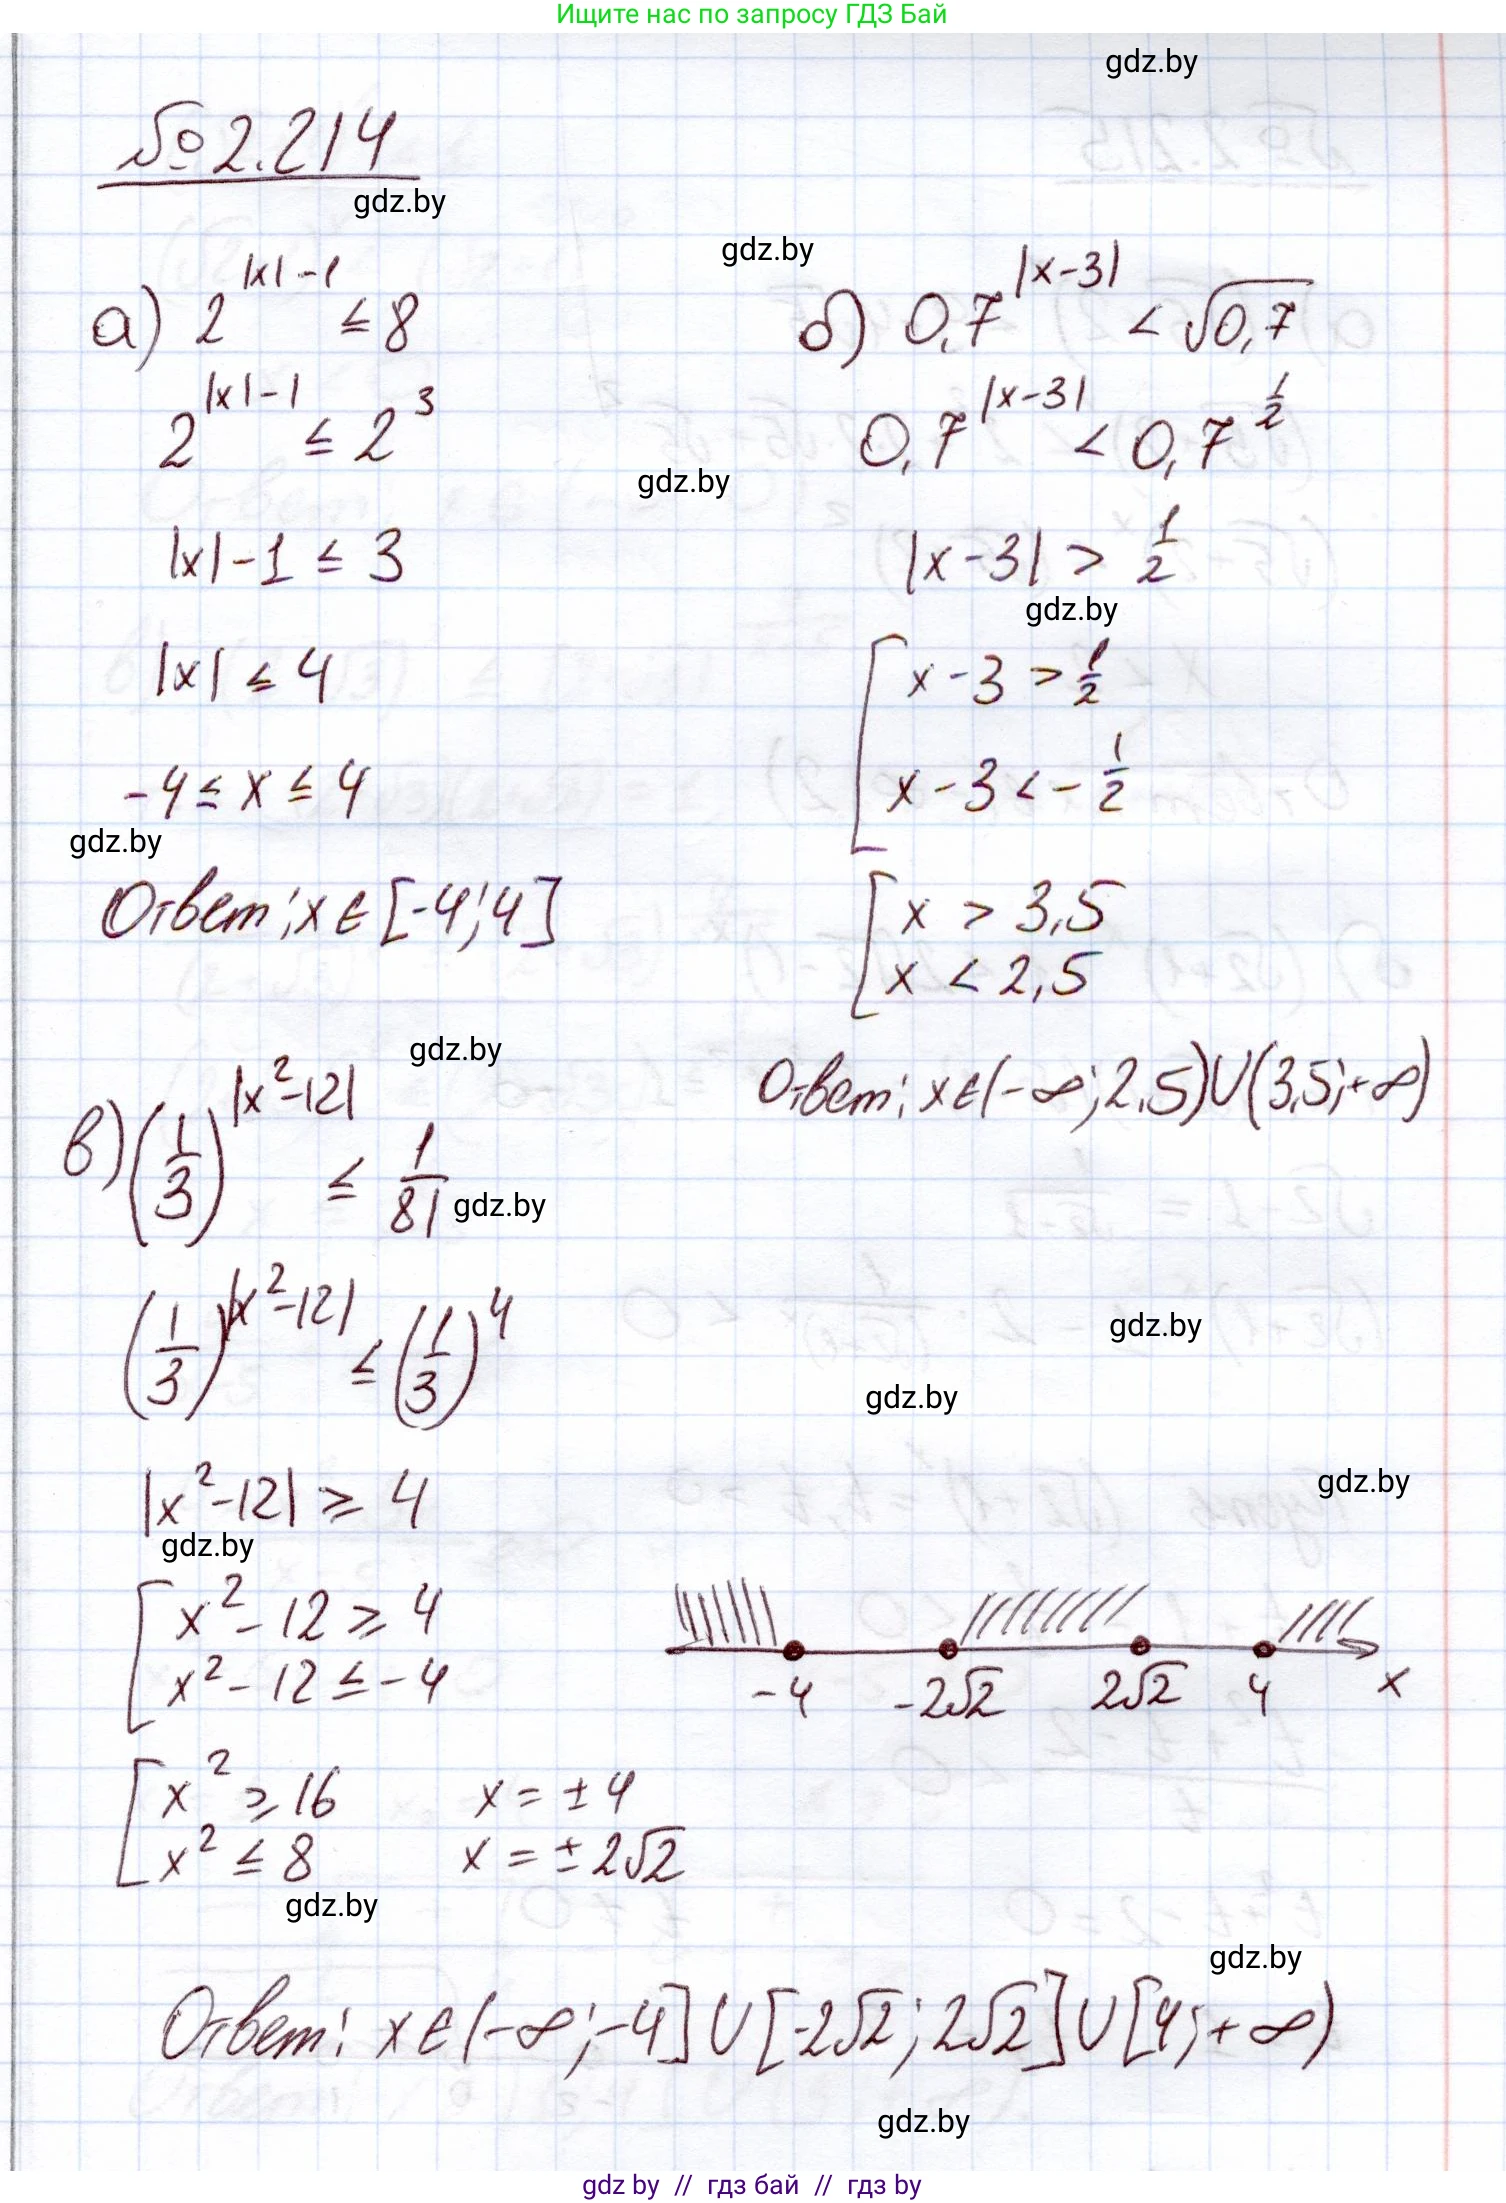 Ищите нас по запросу ГДЗ Бай
gdz.by
№ 2.214
gdz.by
gdz.by
а) 2^{|x|-1} ≤ 8
2^{|x|-1} ≤ 2^3
gdz.by
|x| - 1 ≤ 3
|x| ≤ 4
-4 ≤ x ≤ 4
gdz.by
Ответ: x ∈ [-4; 4]
б) 0,7^{|x-3|} < √0,7
0,7^{|x-3|} < 0,7^{1/2}
|x-3| > 1/2
gdz.by
[ x - 3 > 1/2
x - 3 < - 1/2
[ x > 3,5
x < 2,5
Ответ: x ∈ (-∞; 2,5) ∪ (3,5; +∞)
gdz.by
в) (1/3)^{|x²-12|} ≤ 1/81
gdz.by
(1/3)^{|x²-12|} ≤ (1/3)^4
gdz.by
gdz.by
|x²-12| ≥ 4
gdz.by
gdz.by
[ x² - 12 ≥ 4
x² - 12 ≤ -4
-4 -2√2 2√2 4 x
[ x² ≥ 16 x = ± 4
x² ≤ 8 x = ± 2√2
gdz.by
gdz.by
Ответ: x ∈ (-∞; -4] ∪ [-2√2; 2√2] ∪ [4; +∞)
gdz.by
gdz by // гдз бай // гдз by